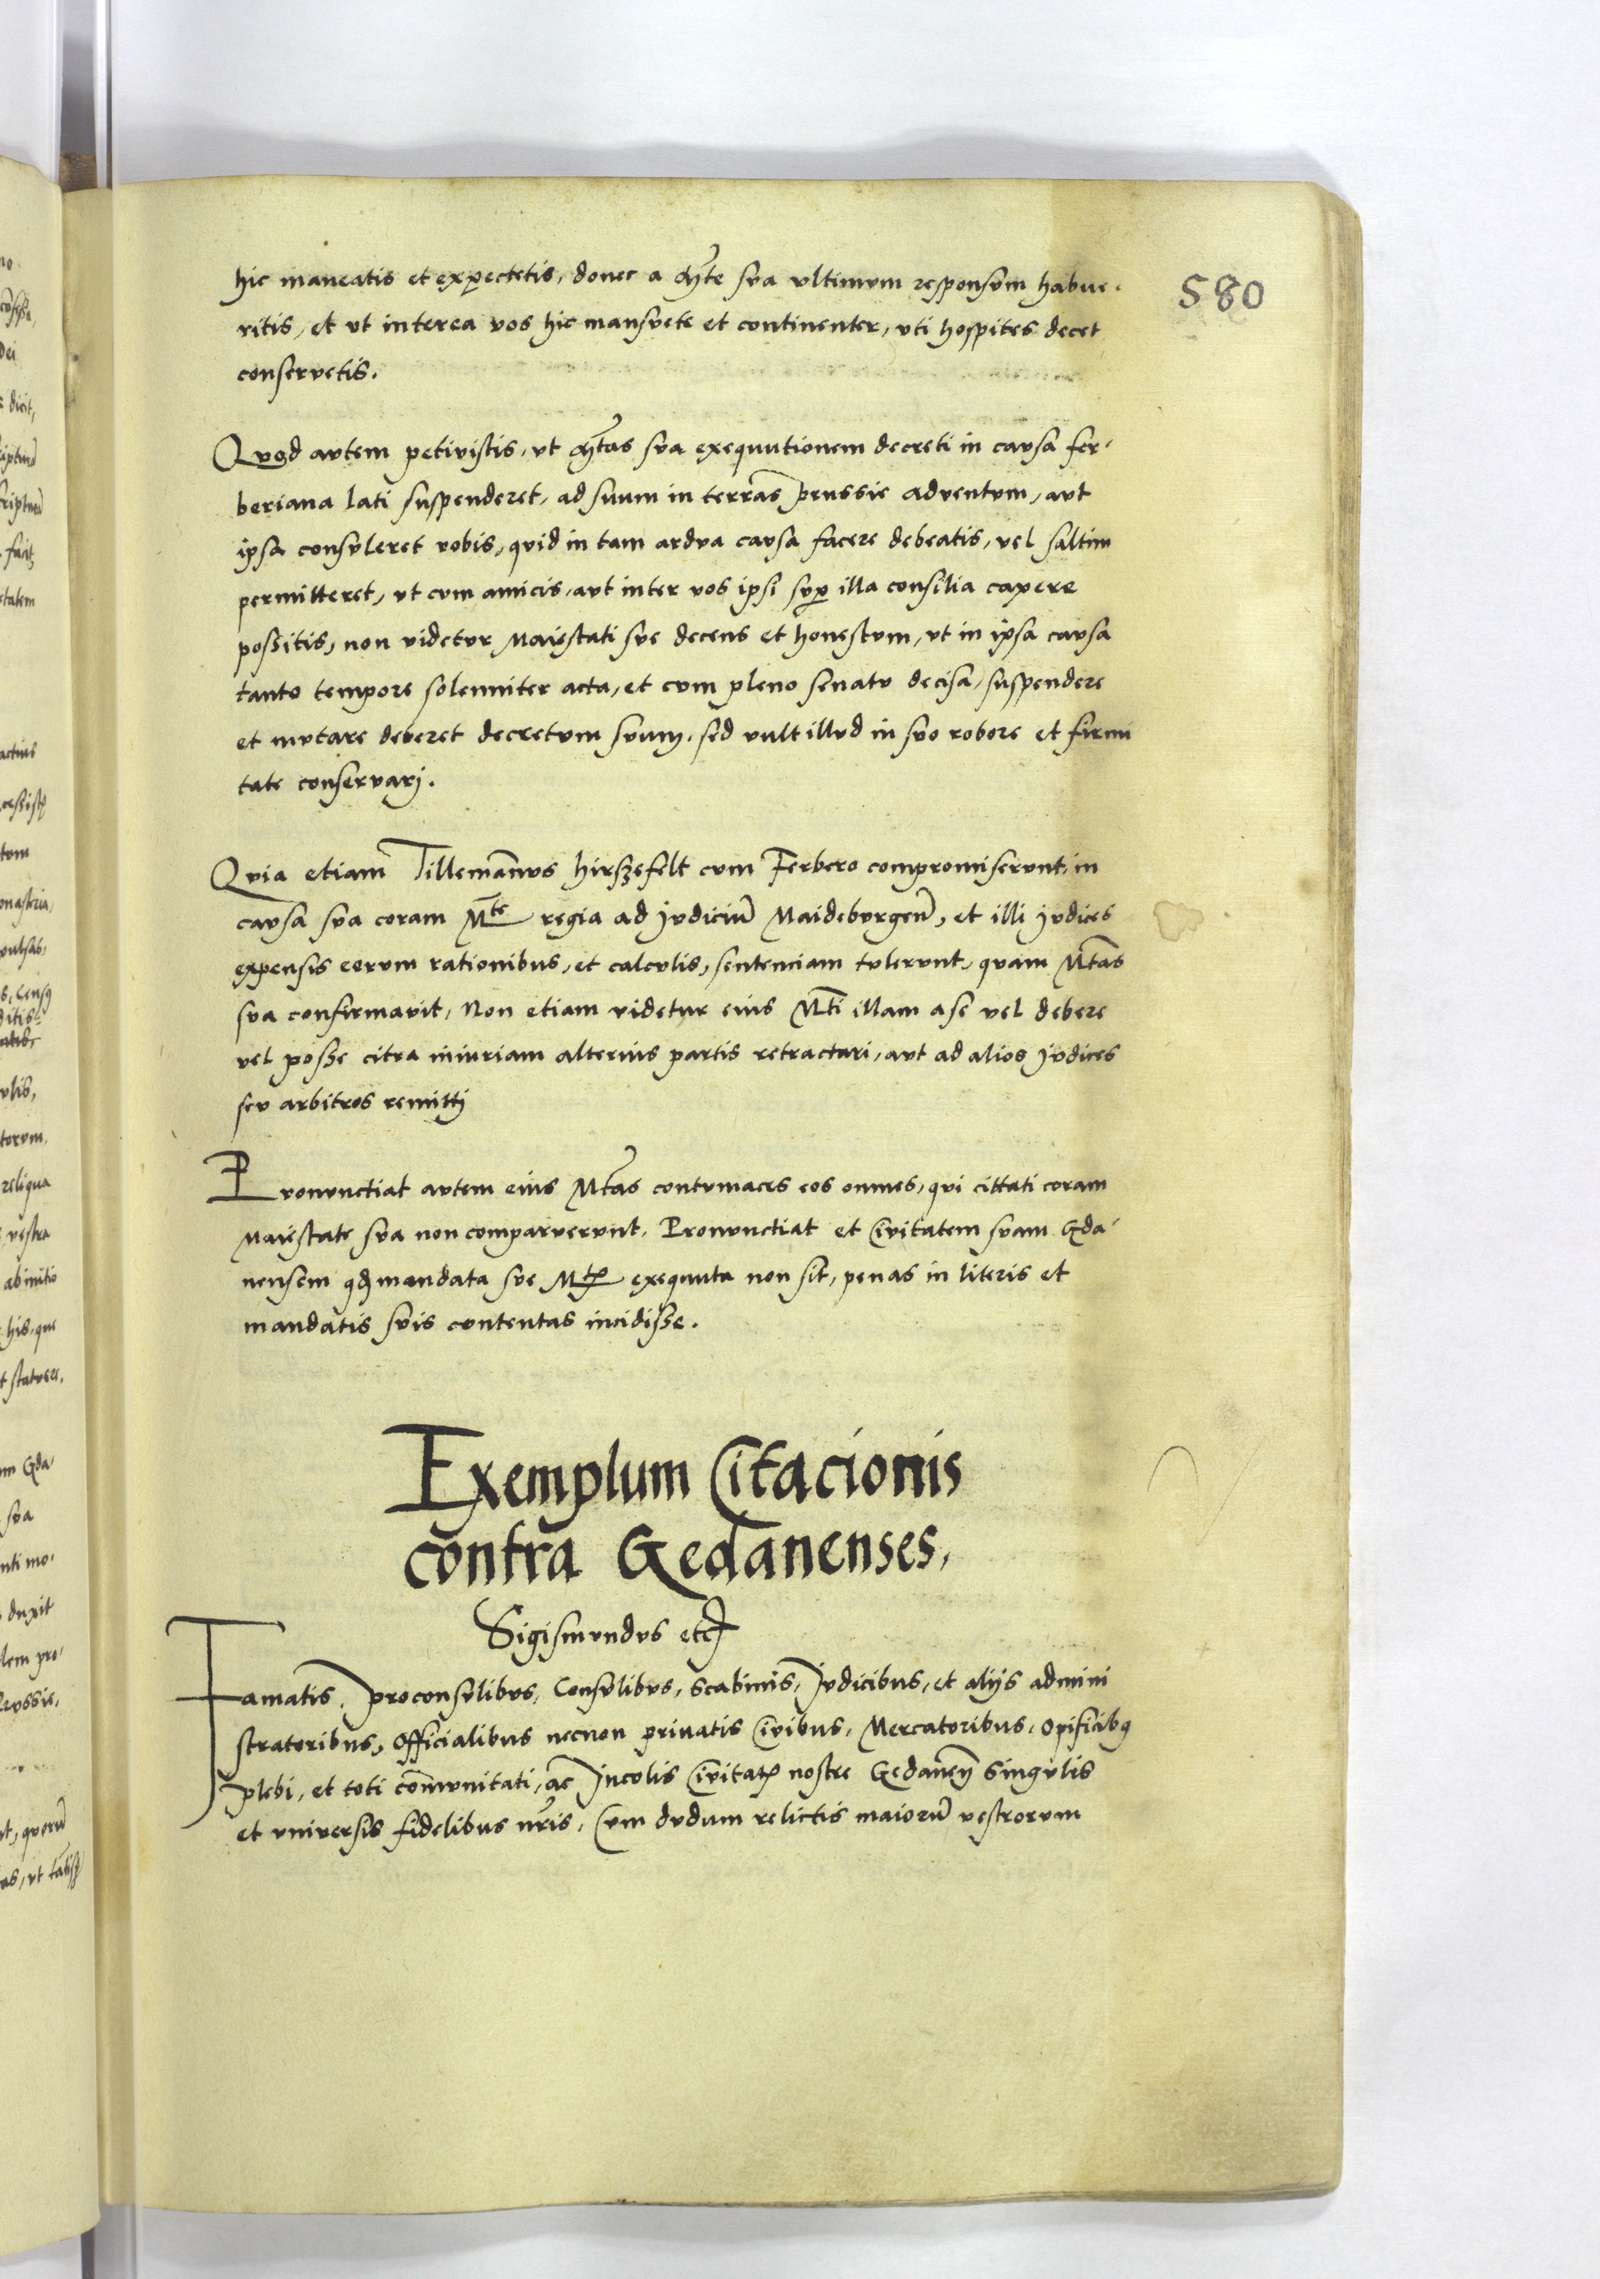 580
hic maneatis et expectetis, donec a Mte sua ultimum responsum habue-
ritis, et ut interea vos hic mansuete et continenter, uti hospites decet
conservetis.
Quod autem petivistis, ut Mtas sua exequutionem decreti in causa fer-
beriana lati suspenderet, ad suum in terras prussie adventum, aut
ipsa consuleret vobis, quid in tam ardua causa facere debeatis, vel saltim
permitteret, ut cum amicis, aut inter vos ipsi sup illa consilia capere
possitis, non videtur Maiestati sue decens et honestum, ut in ipsa causa
tanto tempore solenniter acta, et cum pleno senatu decisa, suspendere
et mutare deberet decretum suum, sed vult illud in suo robore et firmi
tate conservarj.
Quia etiam Tillemanus hirszefelt cum Ferbero compromiserunt, in
causa sua coram Mte regia ad Judiciu Maideburgen, et illi judices
expensis eorum rationibus, et calculis, sentenciam tulerunt, quam Mtas
sua confirmavit, Non etiam videtur eius Mti illam a se vel debere
vel posse citra iniuriam alterius partis retractari, aut ad alios judices
seu arbitros remittj
Pronunctiat autem eius Mtas contumaces eos omnes, qui cittati coram
Maiestate sua non comparuerunt. Pronunctiat et Civitatem suam Gda-
nensem qd mandata sue Mtis exequuta non sit, penas in literis et
mandatis suis contentas incidisse.
Exemplum Citacionis
contra Gedanenses,
Sigismundus etc
Famatis, Proconsulibus, Consulibus, Scabinis, Judicibus, et alijs admini
stratoribus, Officialibus necnon privatis Civibus, Mercatoribus, Opificibus
Plebi, et toti comunitati, ac Incolis Civitatis nostre Gedanen Singulis
et universis fidelibus nris, Cum dudum relictis maioru vestrorum